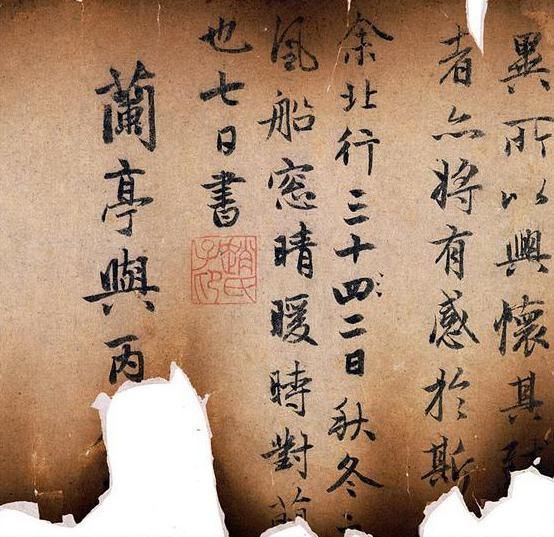 異所以興懷其
者亦將有感於斯
余北行三十四二日秋冬
風船窗晴暖時對
也七日書
趙氏子昂
蘭亭與丙